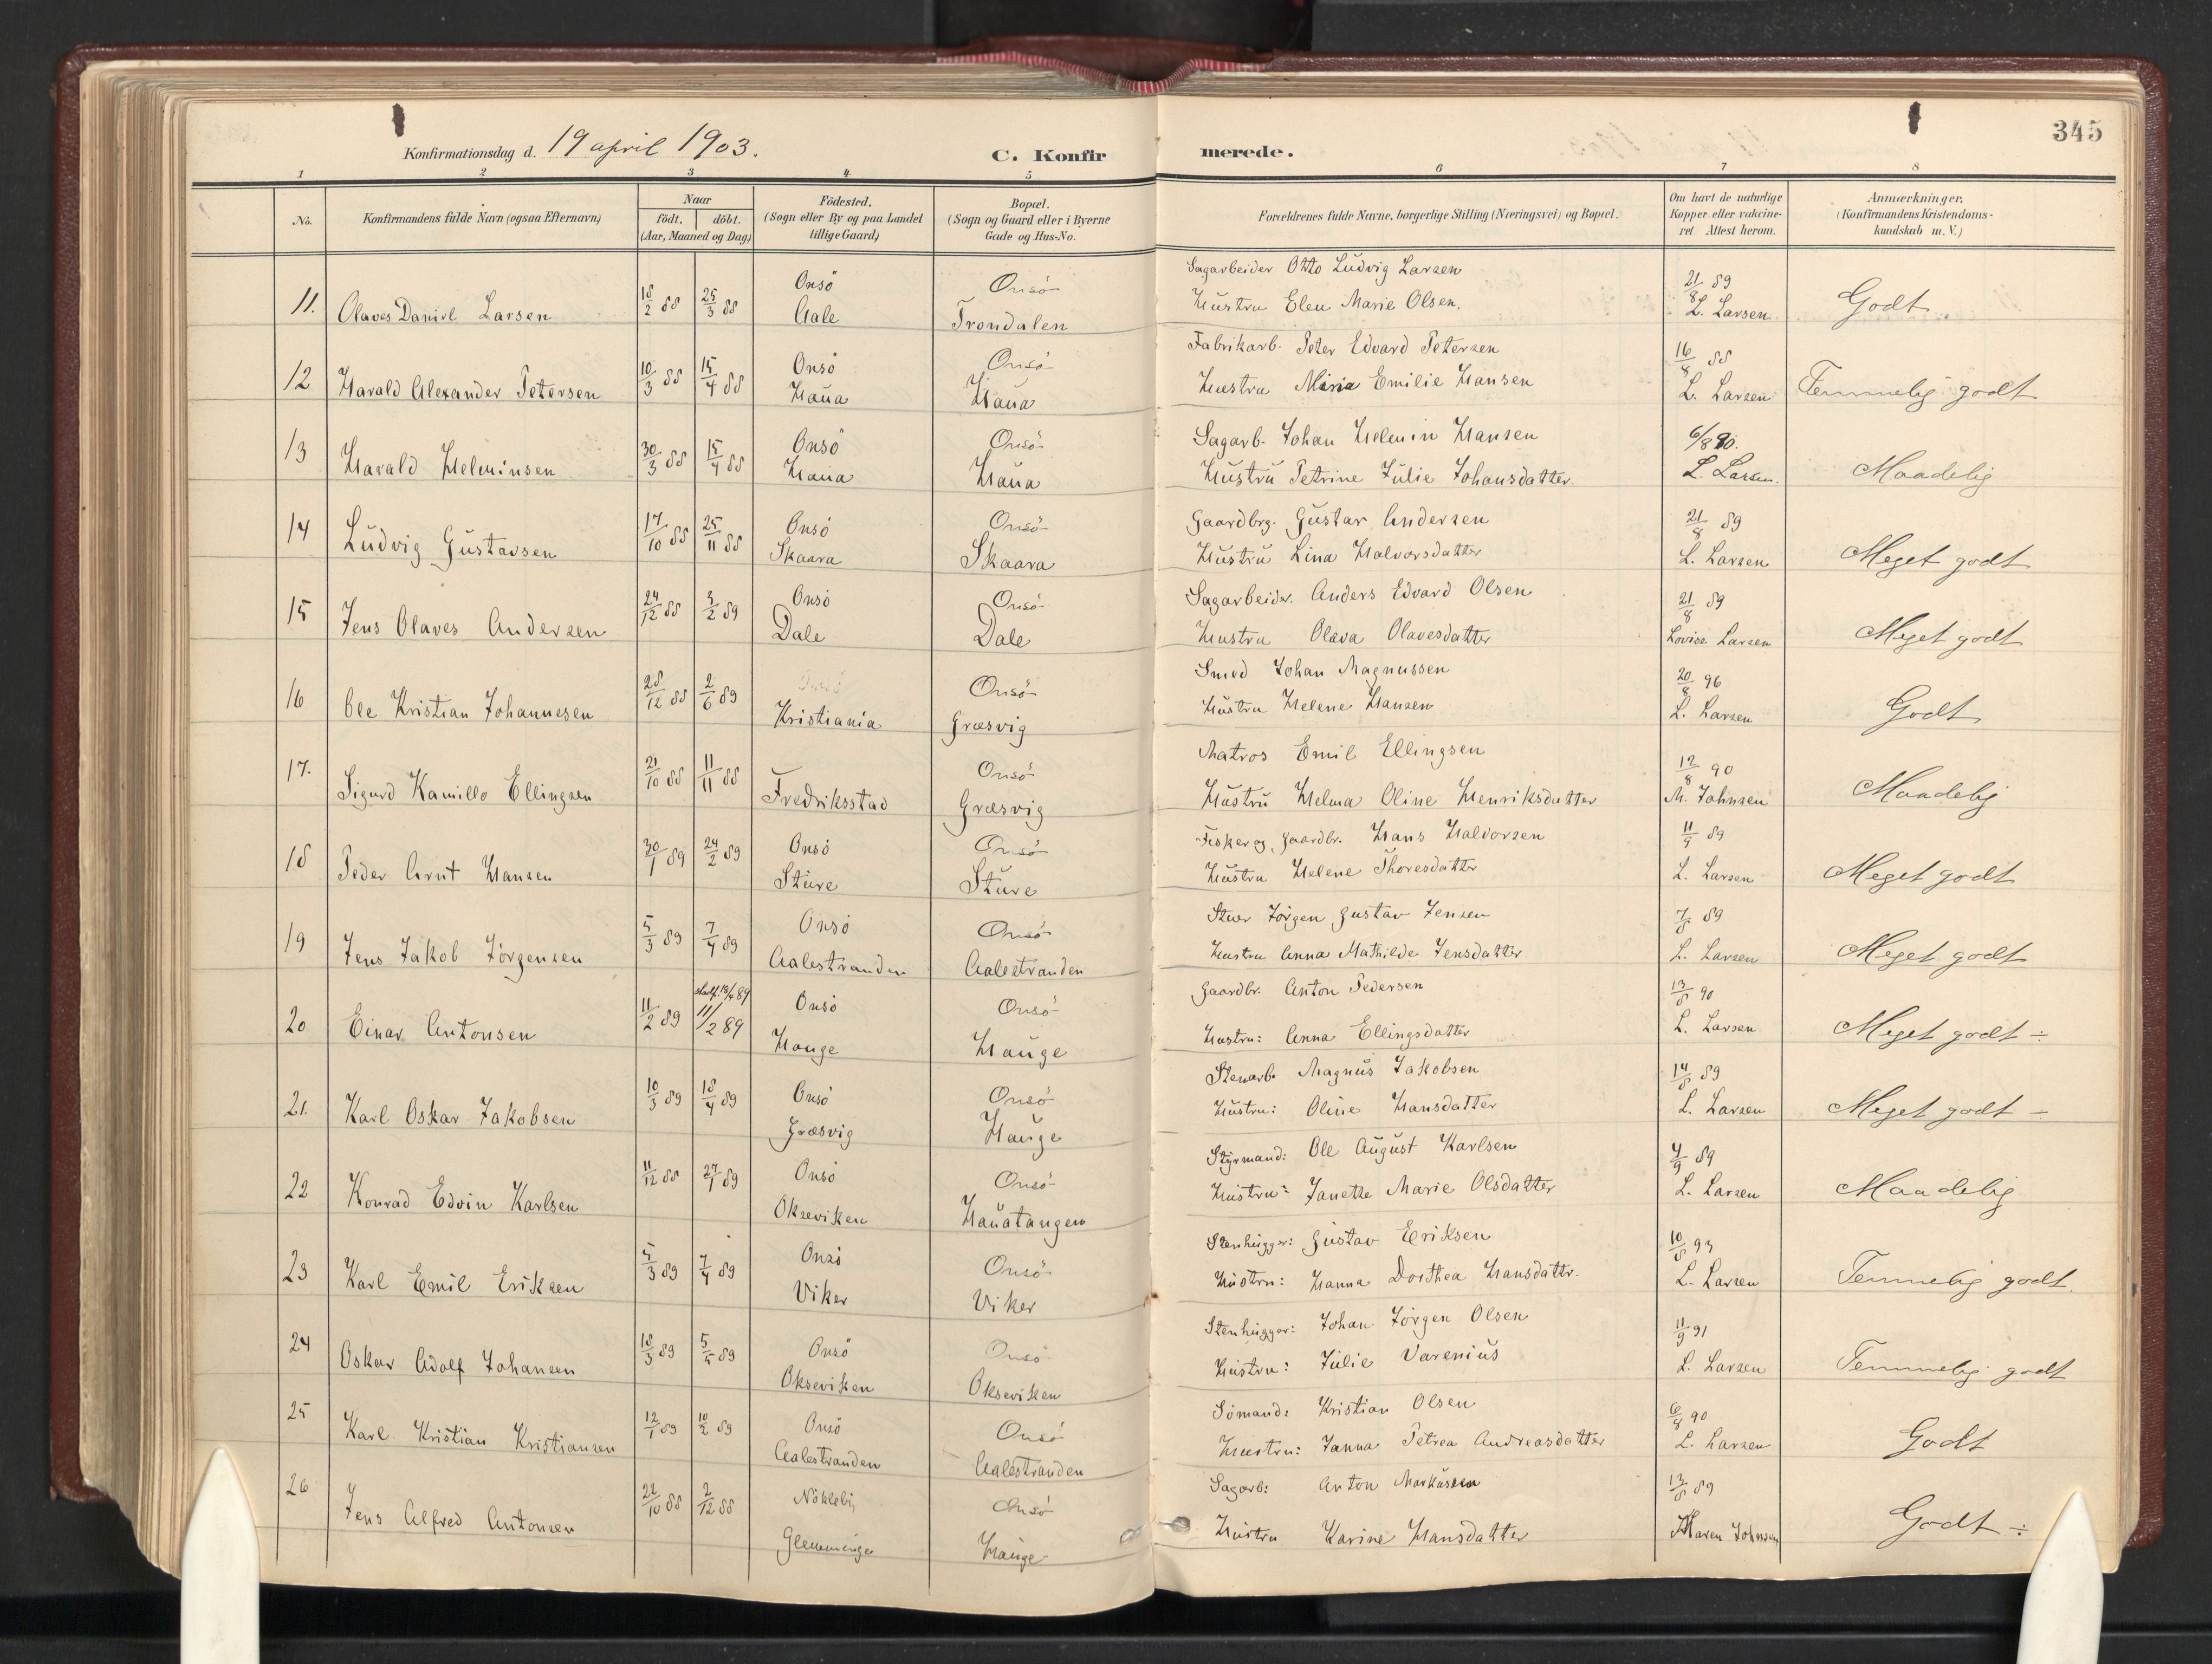 345
Konfirmationsdag d. 19 april 1903. C. Konfirmerede.
1 2 3 4 5 6 7 8
No. Konfirmandens fulde Navn (ogsaa Efternavn) Naar födt. döbt. (Aar, Maaned og Dag) Födested. (Sogn eller By og paa Landet tillige Gaard) Bopæl. (Sogn og Gaard eller i Byerne Gade og Hus-No. Forældrenes fulde Navne, borgerlige Stilling (Næringsvei) og Bopæl. Om havt de naturlige Kopper eller vakcineret Attest herom. Anmærkninger, (Konfirmandens Kristendomskundskab m. V.)
Onsö Onsö Sagarbeider Otto Ludvig Larsen 21/8 89
11. Olaves Daniel Larsen 18/2 88 25/3 88 Aale Trondalen Hustru Elen Marie Olsen. L. Larsen Godt.
Onsö Onsö Fabrikarb. Peter Edvard Petersen 16/8 88
12 Harald Alexander Petersen 10/3 88 15/4 88 Haua Haua Hustru Maria Emilie Hansen L. Larsen Temmelig godt
Onsö Onsö Sagarb. Johan Helmin Hansen 6/8 90.
13 Harald Helminsen 30/3 88 15/4 88 Haua Haua Hustru Petrine Julie Johansdatter. L. Larsen. Maadelig
Onsö Onsö Gaardbrg. Gustav Andersen 21/8 89
14 Ludvig Gustavsen 17/10 88 25/11 88 Skaara Skaara Hustru Lina Halvorsdatter L. Larsen Meget godt
Onsö Onsö Sagarbeider. Anders Edvard Olsen 21/8 89
15 Jens Olaves Andersen 24/12 88 3/2 89 Dale Dale Hustru Olava Olavesdatter Lovise Larsen Meget godt
Onsö Smed Johan Magnussen 20/8 96
16 Ole Kristian Johannesen 28/12 88 2/6 89 Kristiania Græsvig Hustru Helene Hansen L. Larsen Godt
Onsö Matros Emil Ellingsen 12/8 90
17. Sigurd Kamillo Ellingsen 21/10 88 11/11 88 Fredriksstad Græsvig Hustru Helma Oline Henriksdatter M. Johnsen Maadelig
Onsö Onsö Fisker og Gaardbr. Hans Halvorsen 11/9 89
18 Peder Arnt Hansen 30/1 89 24/2 89 Sture Sture Hustru Helene Thoresdatter L. Larsen Meget godt
Onsö Onsö Stuer Jörgen Gustav Jensen 7/8 89
19 Jens Jakob Jörgensen 5/3 89 7/4 89 Aalestranden Aalestranden Hustru Anna Mathilde Jensdatter L. Larsen Meget godt
Onsö Onsö Gaardbr. Anton Pedersen 13/8 90
20 Einar Antonsen 11/2 89 11/2 89 Hauge Hauge Hustru: Anna Ellingsdatter L. Larsen Meget godt ÷
Onsö Onsö Stenarb. Magnus Jakobsen 14/8 89
21. Karl Oskar Jakobsen 10/3 89 18/4 89 Græsvig Hauge Hustru: Oline Hansdatter L. Larsen Meget godt ÷
Onsö Onsö Styrmand: Ole August Karlsen 4/9 89
22 Konrad Edvin Karlsen 11/12 88 27/1 89 Okseviken Hauatangen Hustru: Janette Marie Olsdatter L. Larsen Maadelig
Onsö Onsö Stenhugger: Gustav Eriksen 10/8 93
23 Karl Emil Eriksen 5/3 89 7/4 89 Viker Viker Hustru: Hanna Dorthea Hansdattr. L. Larsen Temmelig godt.
Onsö Onsö Stenhugger: Johan Jörgen Olsen 11/9 91
24 Oskar Adolf Johansen 18/3 89 5/5 89 Okseviken Okseviken Hustru: Julie Varenius L. Larsen Temmelig godt
Onsö Onsö Sömand: Kristian Olsen 6/8 90
25 Karl Kristian Kristiansen 12/1 89 10/2 89 Aalestranden Aalestranden Hustru: Janna Petrea Andreasdatter L. Larsen Godt
Nökleby Onsö Sagarb: Anton Markussen 13/8 89
26 Jens Alfred Antonsen 22/10 88 2/12 88 Glemminge Hauge Hustru Karine Hansdatter Maren Johnsen Godt ÷